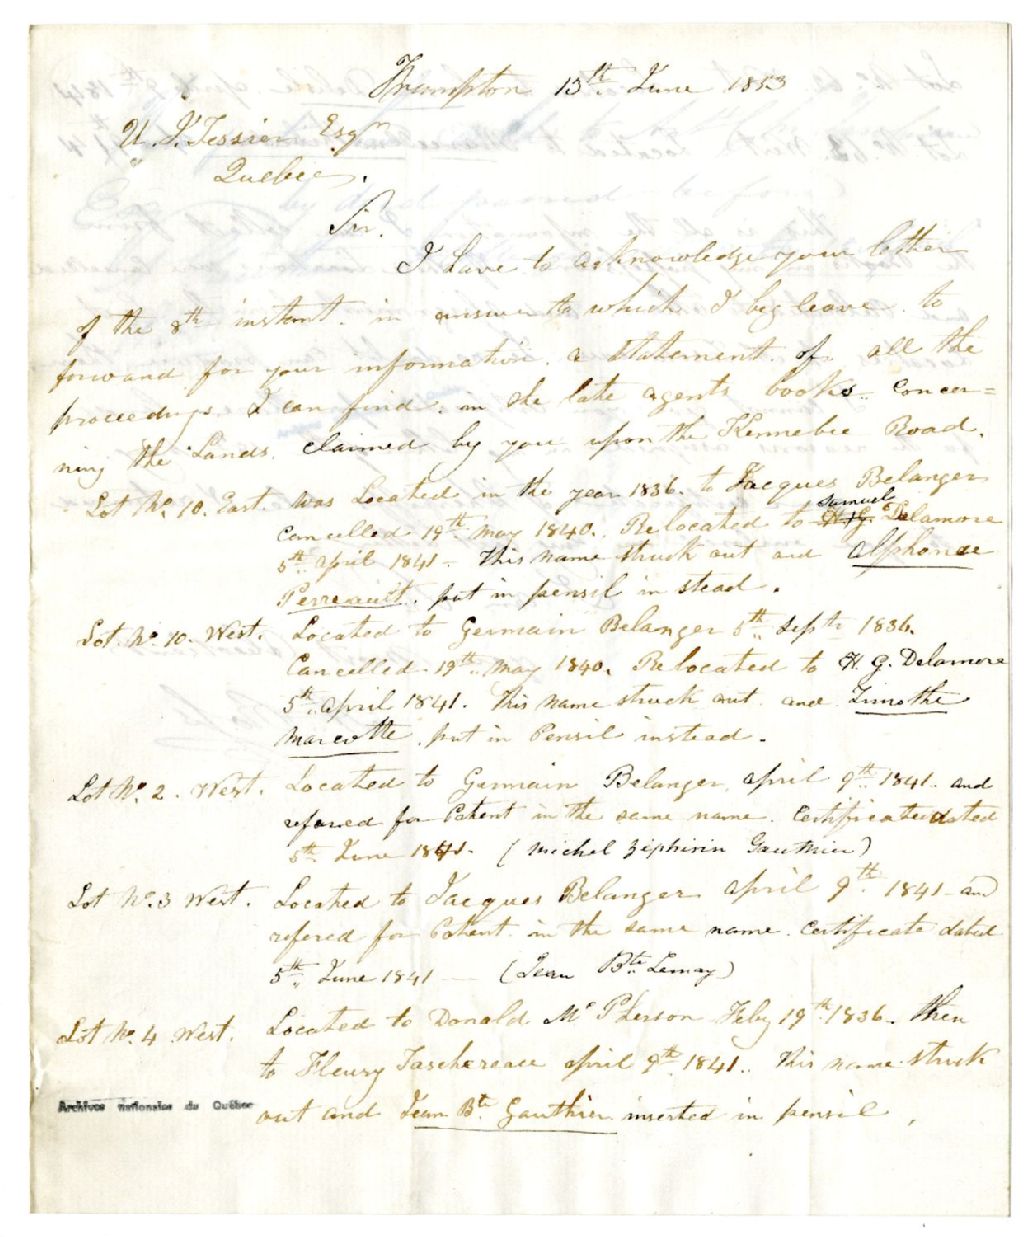 Frampton 13th June 1853
U. J. Tessier Esqr
Quebec.
Sir.
I have to acknowledge your letter
of the 8th instant. in answer to which I beg leave to
forward for your information. a statement of all the
proceedings I can find. in the late agents books. concer=
ning the Lands. claimed by you upon the Kennebec Road.
Lot No. 10. East. was Located in the year 1836. to Jacques Belanger
Cancelled 19th may 1840. Relocated to H. G. Samuel Delamore
5th april 1841 - this name struck out and Alphonse
Perreault. put in pensil in stead.
Lot. No. 10. West. Located to Germain Belanger 5th Septr 1836.
Cancelled. 19th may 1840. Relocated to H. G. Delamore
5th april 1841. this name struck out. and Timothe
Marcotte. put in Pensil instead.
Lot No. 2. West. Located to Germain Belanger. april 9th 1841. and
refered for Patent in the same name. Certificate dated
5th June 1841. (Michel Zéphirin Gauthier)
Lot No. 3 West. Located to Jacques Belanger april 9th 1841 - and
refered for Patent. in the same name. Certificate dated
5th June 1841 — (Jean Bte Lemay)
Lot No. 4 West. Located to Donald Mc Pherson Feby 19th 1836. then
to Fleury Taschereau april 9th 1841. this name struck
out and Jean Bt. Gauthier inserted in pensil.
Archives nationales du Québec